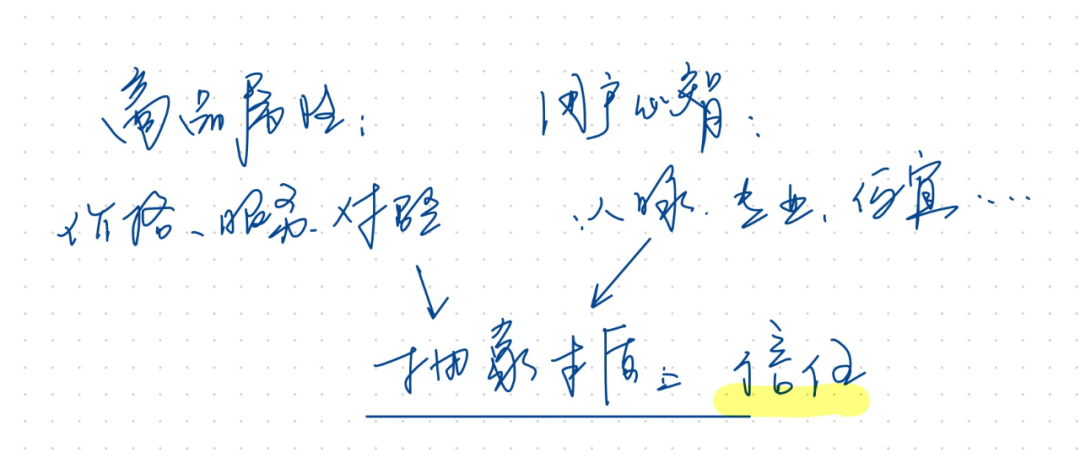 商品属性：
用户心智：
价格、服务、体验
专业、便宜....
抽象本质：信任